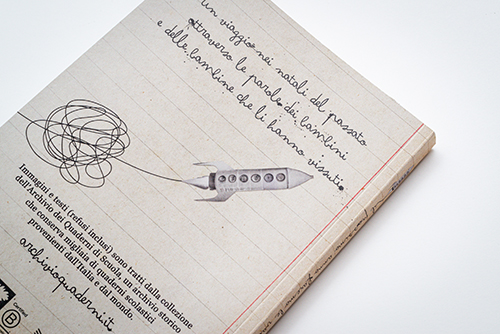 un viaggio nei natali del passato
attraverso le parole dei bambini
e delle bambine che li hanno vissuti.
Immagini e testi (refusi inclusi) sono tratti dalla collezione
dell'Archivio dei Quaderni di Scuola, un archivio storico
che conserva migliaia di quaderni scolastici
provenienti dall'Italia e dal mondo.
archivioquaderni.it
B